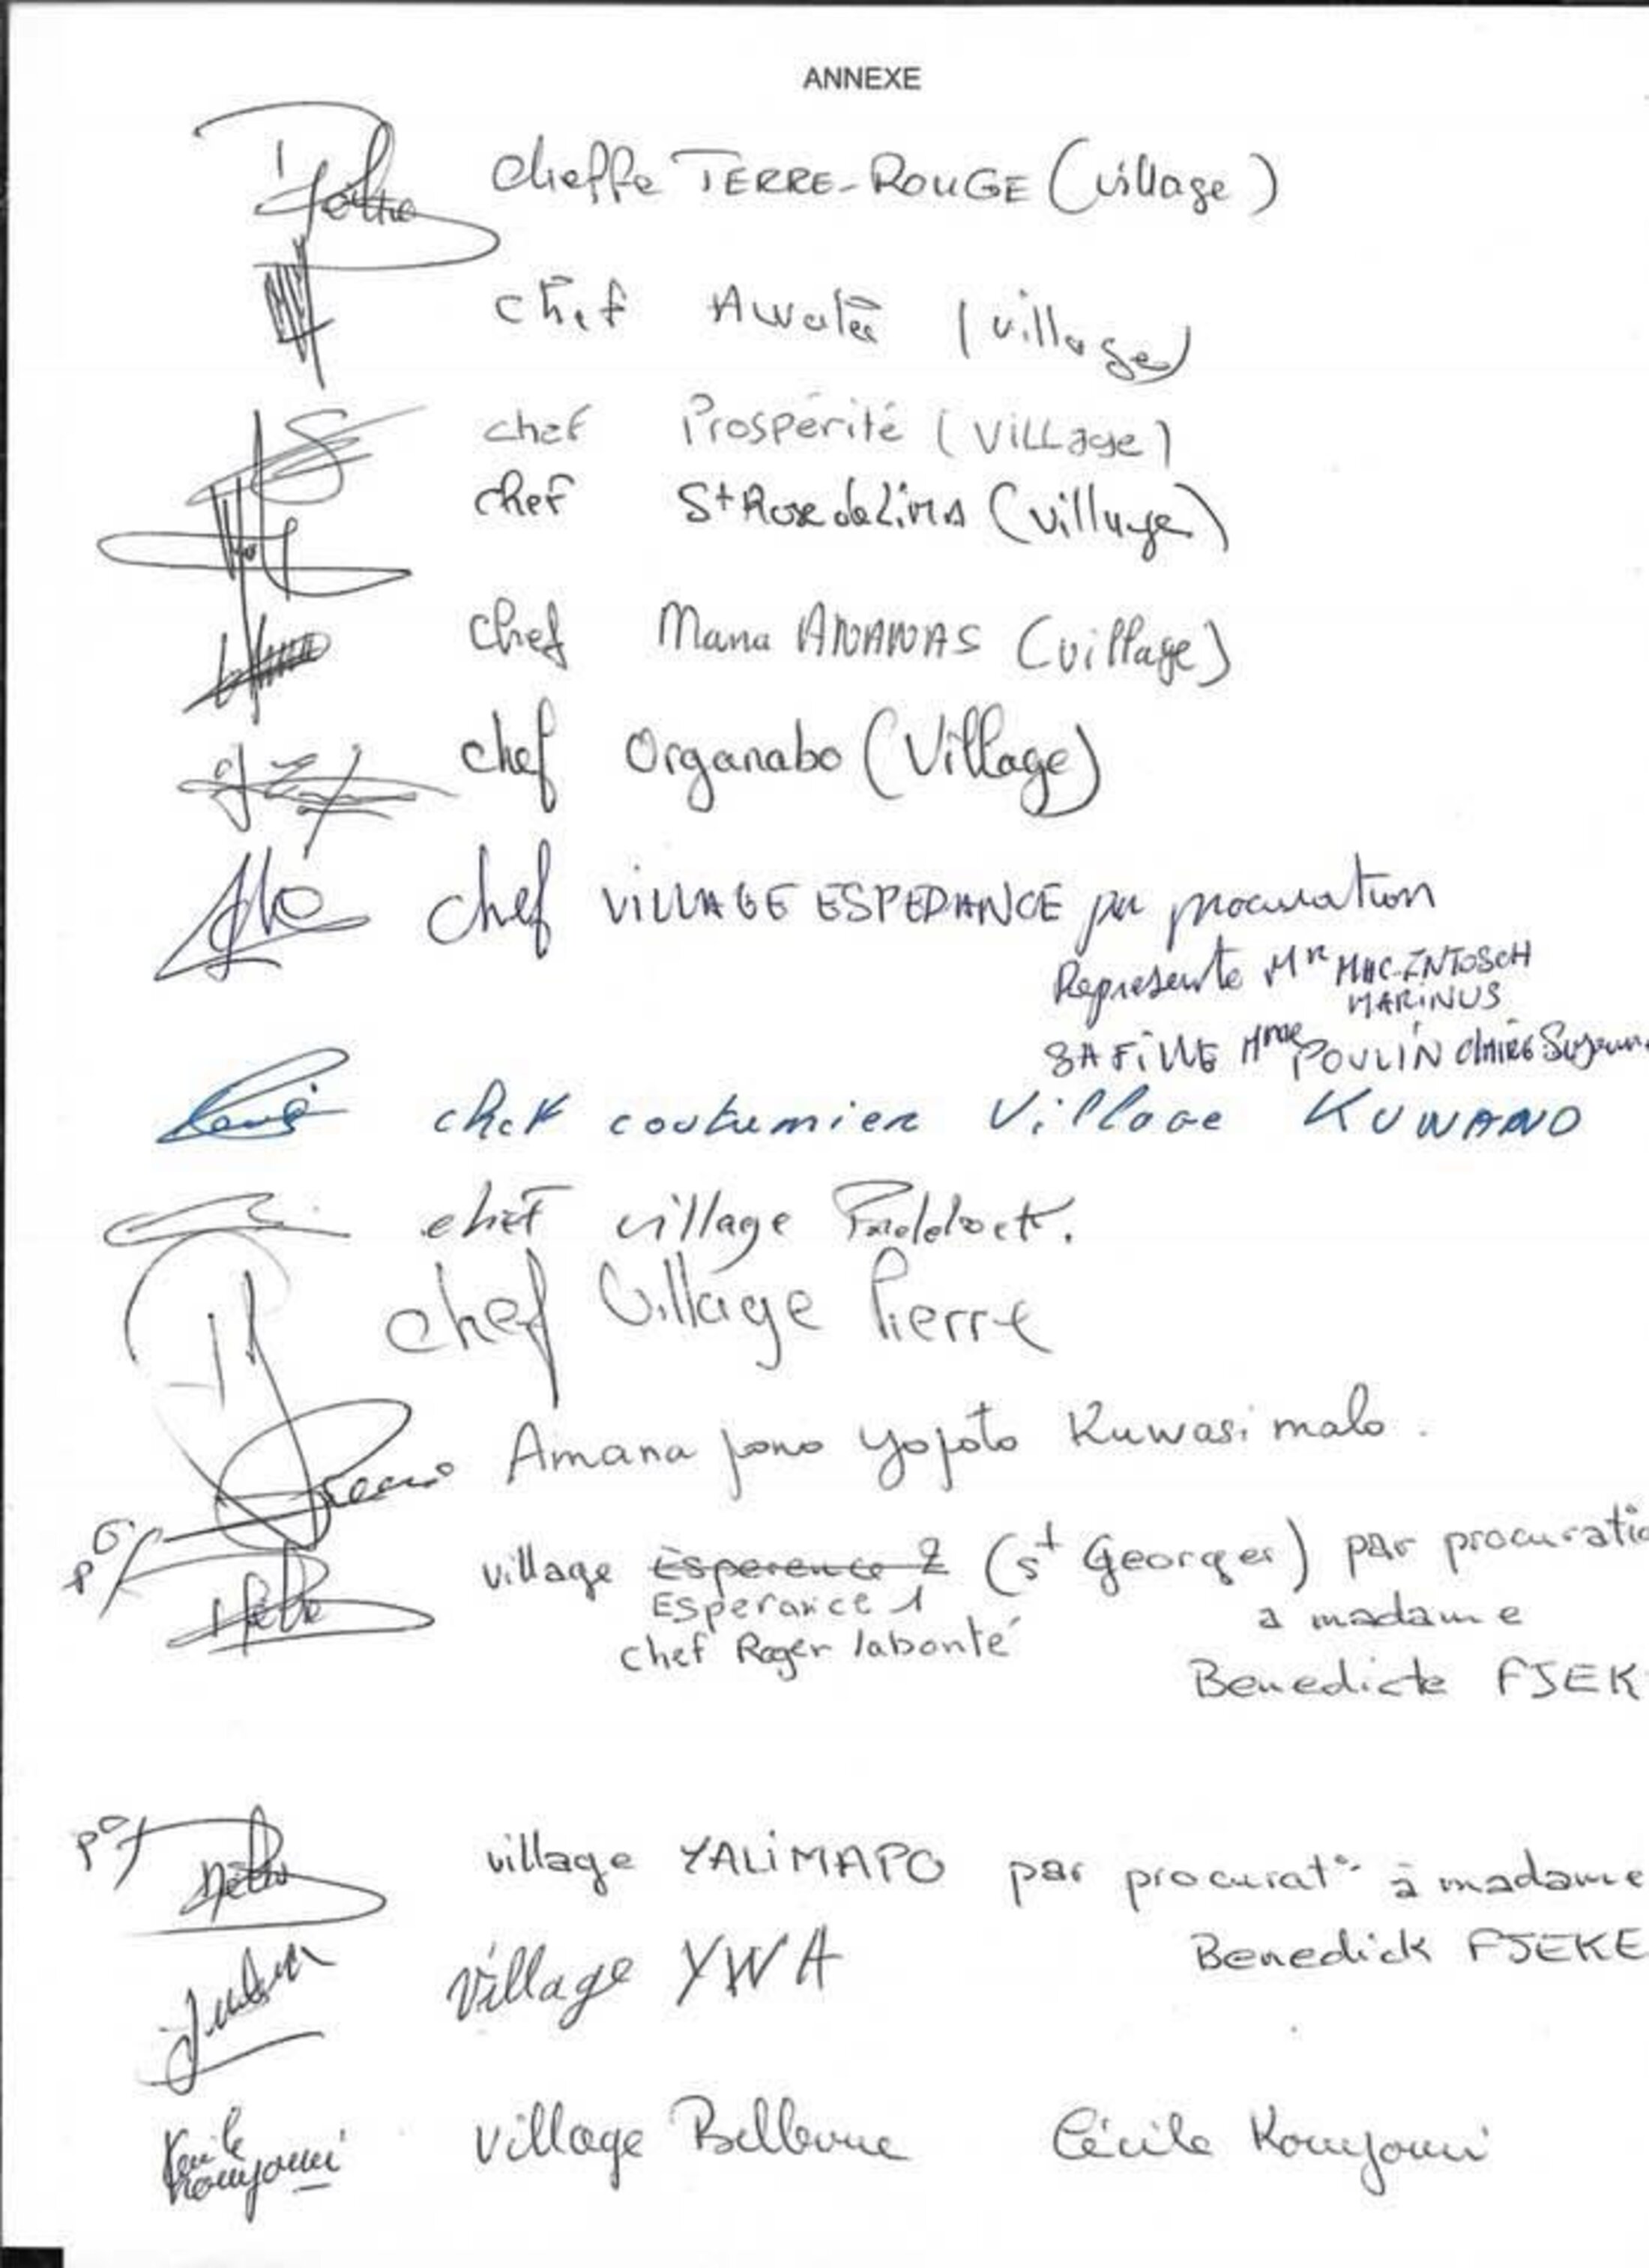 ANNEXE
Cheffe TERRE-ROUGE (village)
chef Awala (village)
chef Prospérité (VILLage)
chef St Rose de Lima (village)
chef Mana ANANAS (village)
chef Organabo (Village)
chef VILLAGE ESPERANCE par procuration
Represente Mr MAC-INTOSCH
MARINUS
SA FILLE Mme POULIN Claire
chef coutumier Village KUWANO
chef village Paddock.
chef Village Pierre
Amana jono yopoto Kuwasi malo.
po/ village Esperence 2 (st Georges) par procuratio
Esperance 1 a madame
chef Roger labonté
Benedicte FJEK
po/ village YALIMAPO par procurat° à madame
Benedick FJEKE
Village YWA
Village Bellevue Cécile Kouyouri